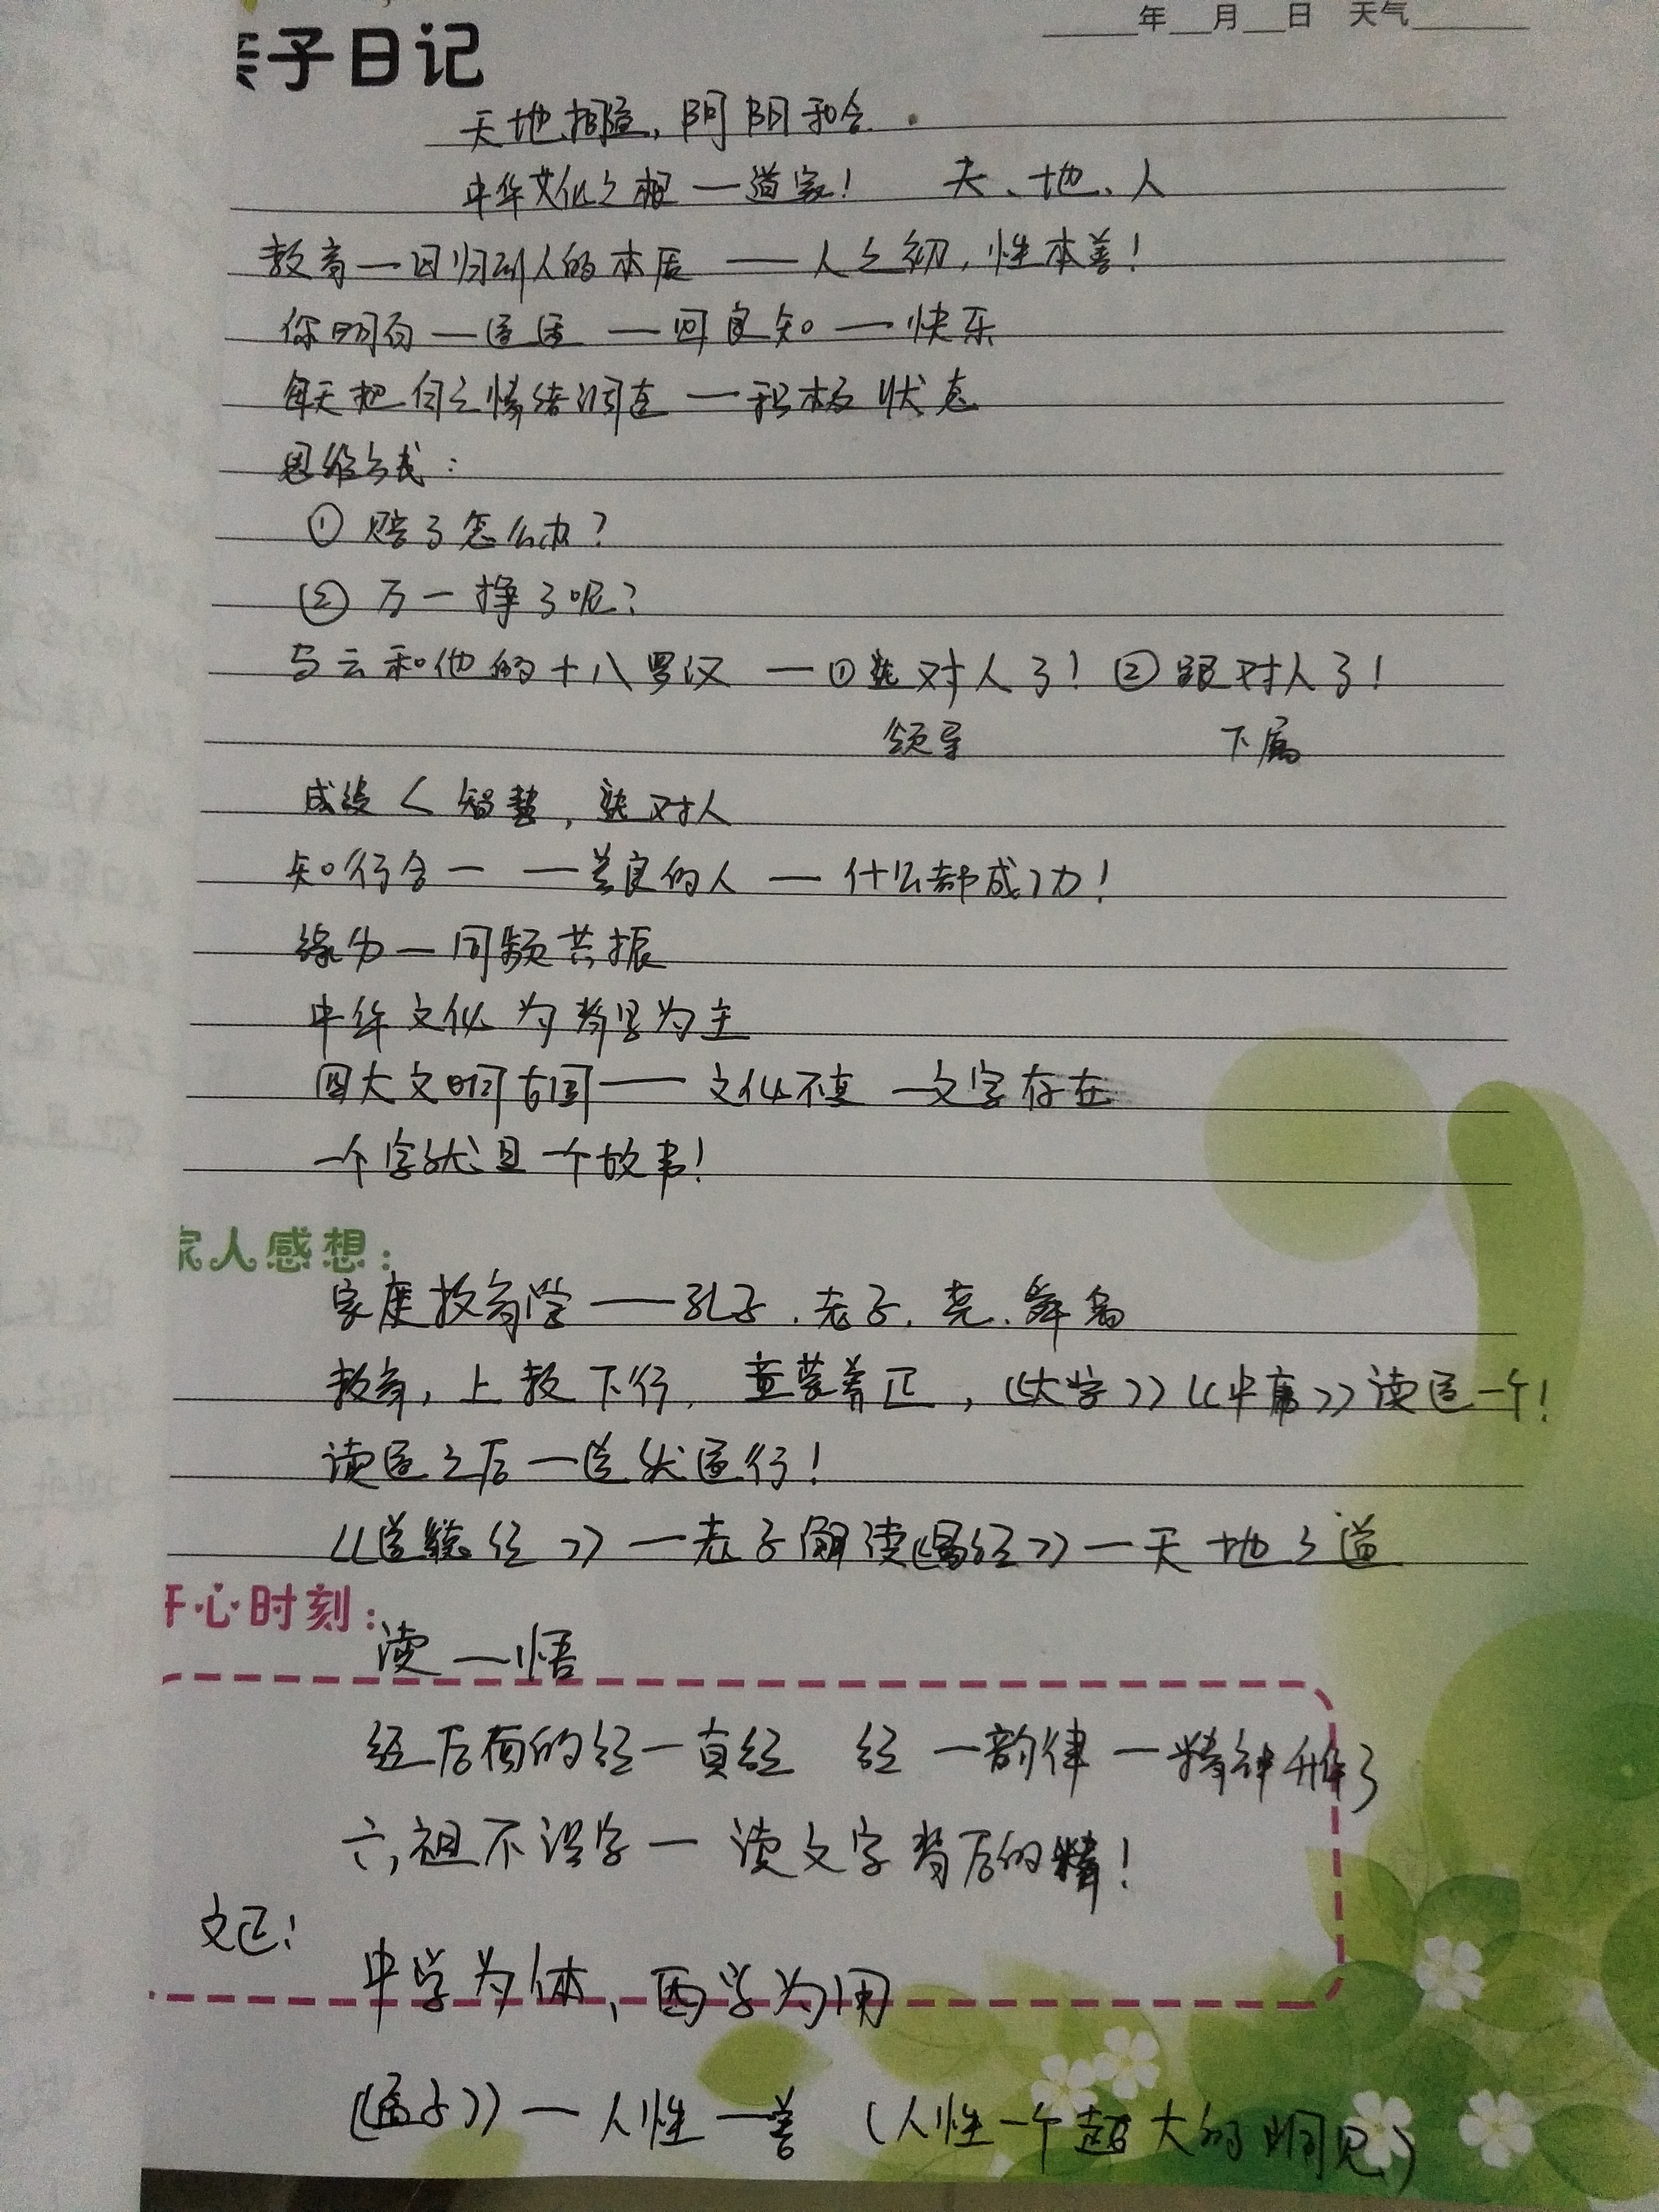 年 月 日 天气
亲子日记
天地相通，阴阳和合
中华文化之根一道家！ 天、地、人
教育一回归到人的本质 —— 人之初，性本善！
你明白一 — 回良知 — 快乐
每天把自己情绪调 — 积极状态
思维方式：
① 赔了怎么办？
② 万一挣了呢？
马云和他的十八罗汉 — ①选对人了！ ②跟对人了！
领导 下属
成绩 < 智慧，选对人
知行合一 — 善良的人 — 什么都成功！
缘分一同频共振
中华文化为背景为主
四大文明古国 —— 文化不变 一文字存在
一个字就是一个故事！
家人感想：
家庭教育学 —— 孔子、老子、尧、舜禹
教育，上教下行，童蒙养正，《大学》《中庸》读通一个！
读通之后一道就通行！
《道德经》一老子解读《易经》一天地之道
开心时刻：
读一悟
经后面的经一真经 经 一韵律 一精神升华了
六祖不识字一 读文字背后的精！
文正！
中学为体、西学为用
《孟子》一人性一善 （人性一个超大的洞见）